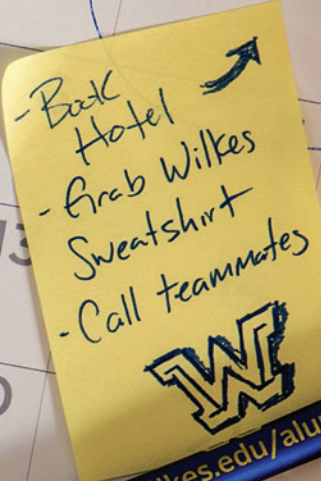 - Book
Hotel
- Grab Wilkes
Sweatshirt
- Call teammates
W
lkes.edu/alu